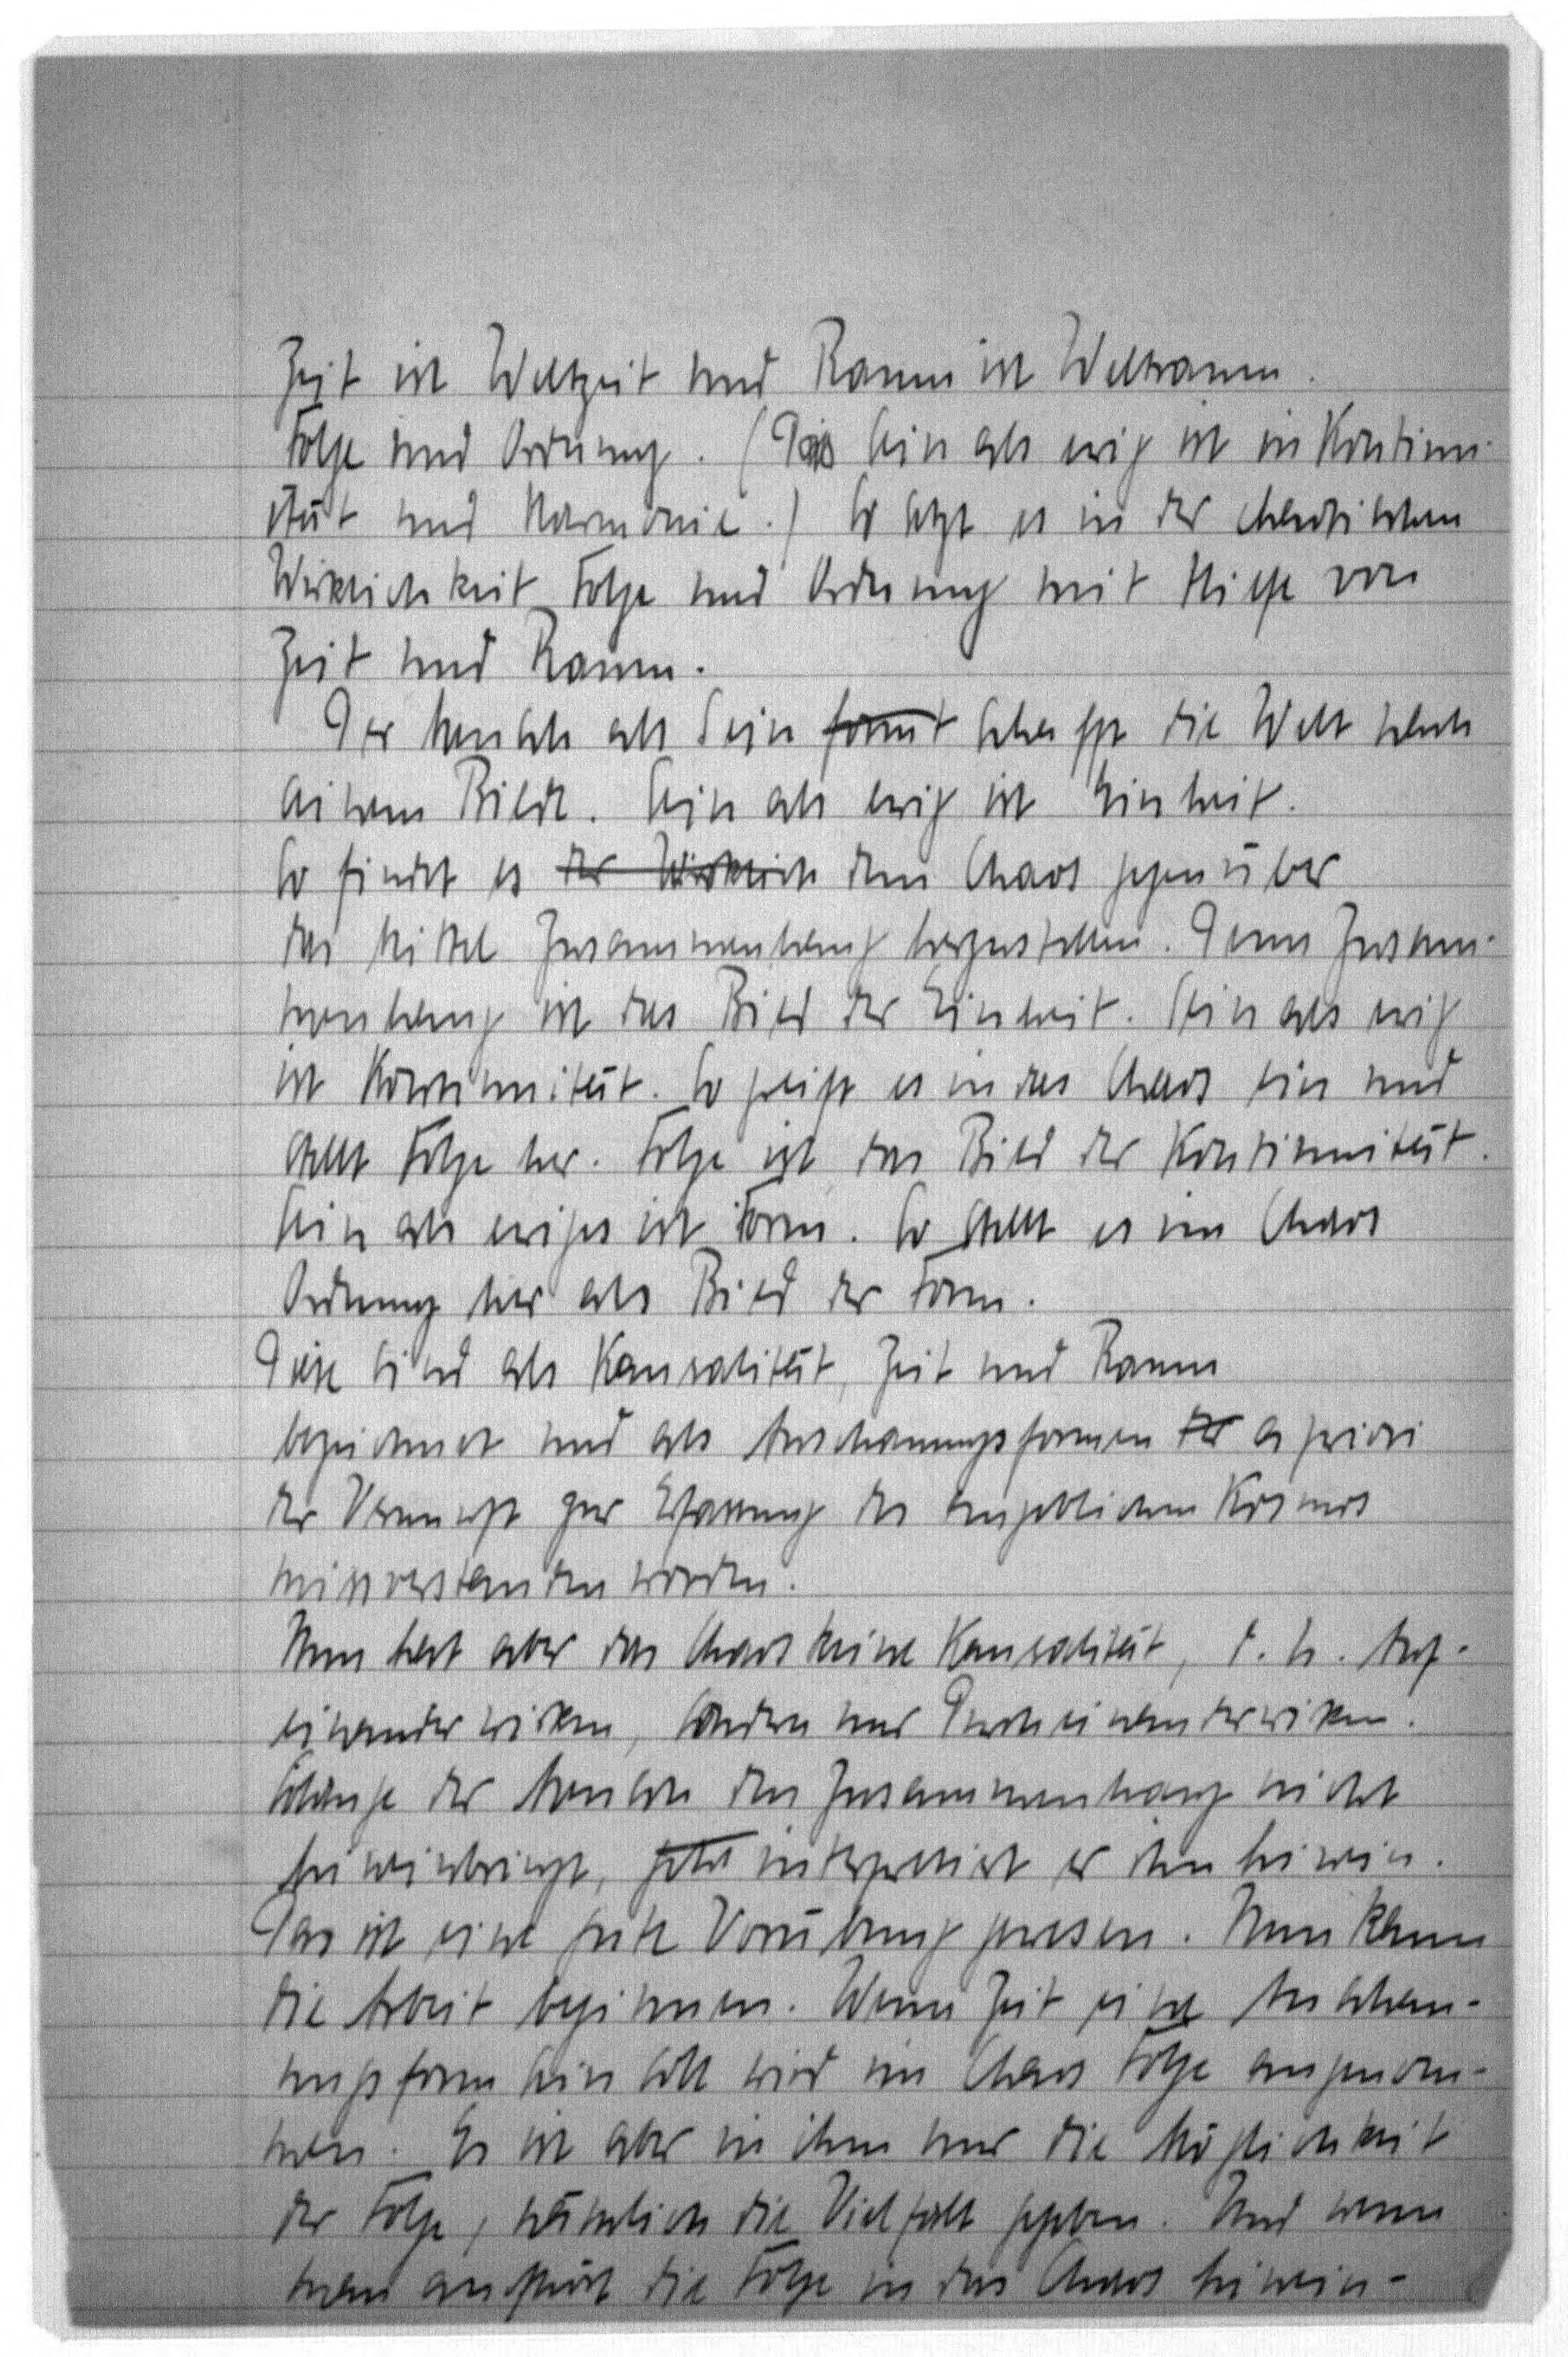 Zeit ist Weltzeit und Raum ist Weltraum.
Folge und Ordnung. (Das Sein als ewig ist in Kontinu-
ität und Harmonie.) So setzt es in der chaotischen
Wirklichkeit Folge und Ordnung mit Hilfe von
Zeit und Raum.
Der Mensch als Sein formt schafft die Welt nach
seinem Bilde. Sein als ewig ist Einheit.
So findet es der Wirklich dem Chaos gegenüber
das Mittel Zusammenhang herzustellen. Denn Zusam-
menhang ist das Bild der Einheit. Sein als ewig
ist Kontinuität. So greift es in das Chaos ein und
stellt Folge her. Folge ist das Bild der Kontinuität.
Sein als ewiges ist Form. So stellt es im Chaos
Ordnung her als Bild der Form.
Diese sind als Kausalität, Zeit und Raum
bezeichnet und als Anschauungsformen der a priori
der Vernunft zur Erfassung des angeblichen Kosmos
missverstanden worden.
Nun hat aber das Chaos keine Kausalität, d. h. Auf-
einanderwirken, sondern nur Durcheinanderwirken.
Solange der Mensch den Zusammenhang nicht
hineinbringt, interpretiert er ihn hinein.
Das ist eine gute Vorübung gewesen. Nun kann
die Arbeit beginnen. Wenn Zeit eine Anschau-
ungsform sein soll wird im Chaos Folge angenom-
men. Es ist aber in ihm nur die Möglichkeit
der Folge, nämlich die Vielfalt gegeben. Und wenn
man aufhört die Folge in das Chaos hinein-